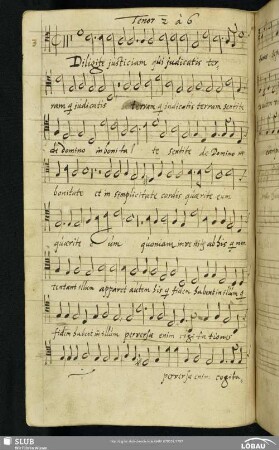 Tenor 2 à 6
Diligite justiciam qui judicatis ter,
ram q judicatis terram q judicatis terram sentite
de Domino in bonita te sentite de Domino in
bonitate et in simplicitate cordis quærite eum
quærite eum quoniam invenitur ab his q non
tentant illum apparet autem his q fidem habent in illum q
fidem habent in illum perversæ enim cogitationes
perversæ enim cogita,
SLUB
Wir führen Wissen.
LÖBAU